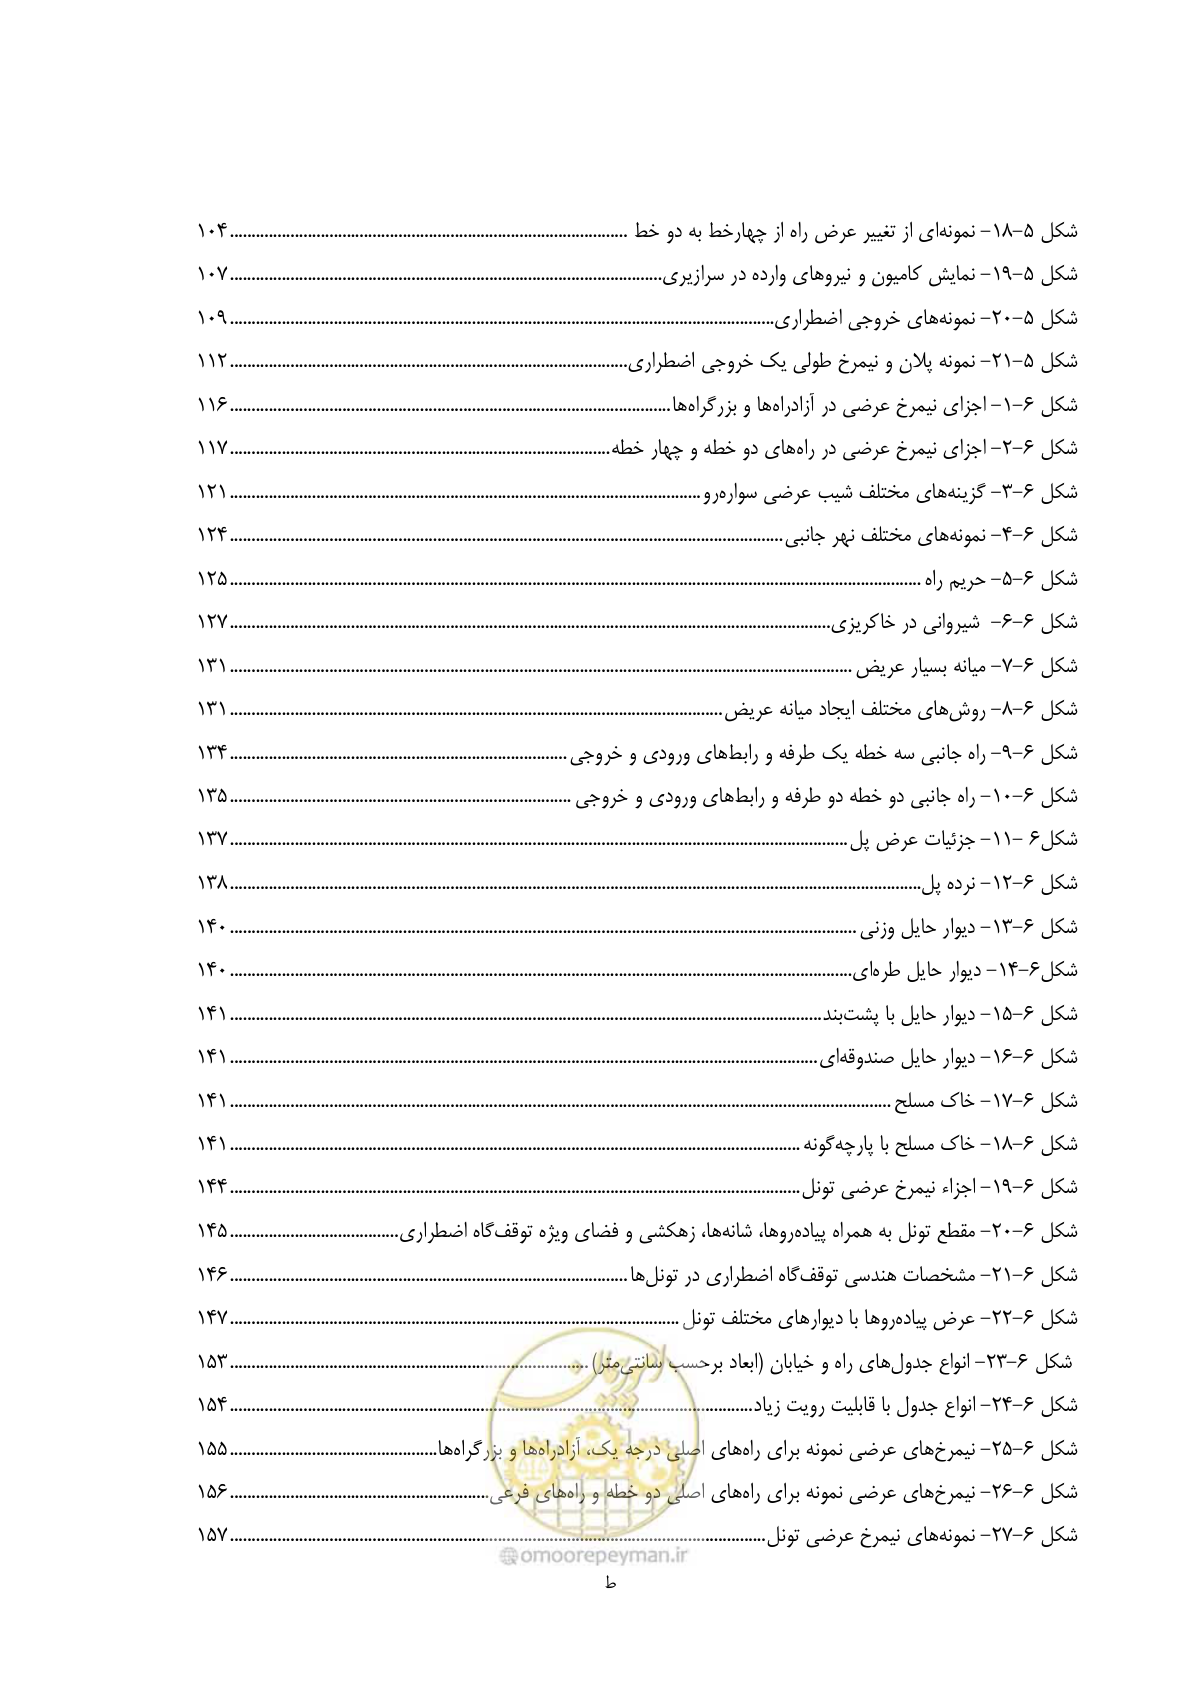 شکل ۵-۱۸- نمونه‌ای از تغییر عرض راه از چهارخط به دو خط ........ ۱۰۴
شکل ۵-۱۹- نمایش کامیون و نیروهای وارده در سرازیری ........ ۱۰۷
شکل ۵-۲۰- نمونه‌های خروجی اضطراری ........ ۱۰۹
شکل ۵-۲۱- نمونه پلان و نیمرخ طولی یک خروجی اضطراری ........ ۱۱۲
شکل ۶-۱- اجزای نیمرخ عرضی در آزادراه‌ها و بزرگراه‌ها ........ ۱۱۶
شکل ۶-۲- اجزای نیمرخ عرضی در راه‌های دو خطه و چهار خطه ........ ۱۱۷
شکل ۶-۳- گزینه‌های مختلف شیب عرضی سواره‌رو ........ ۱۲۱
شکل ۶-۴- نمونه‌های مختلف نهر جانبی ........ ۱۲۴
شکل ۶-۵- حریم راه ........ ۱۲۵
شکل ۶-۶- شیروانی در خاکریزی ........ ۱۲۷
شکل ۶-۷- میانه بسیار عریض ........ ۱۳۱
شکل ۶-۸- روش‌های مختلف ایجاد میانه عریض ........ ۱۳۱
شکل ۶-۹- راه جانبی سه خطه یک طرفه و رابط‌های ورودی و خروجی ........ ۱۳۴
شکل ۶-۱۰- راه جانبی دو خطه دو طرفه و رابط‌های ورودی و خروجی ........ ۱۳۵
شکل۶ -۱۱- جزئیات عرض پل ........ ۱۳۷
شکل ۶-۱۲- نرده پل ........ ۱۳۸
شکل ۶-۱۳- دیوار حایل وزنی ........ ۱۴۰
شکل۶-۱۴- دیوار حایل طره‌ای ........ ۱۴۰
شکل ۶-۱۵- دیوار حایل با پشت‌بند ........ ۱۴۱
شکل ۶-۱۶- دیوار حایل صندوقه‌ای ........ ۱۴۱
شکل ۶-۱۷- خاک مسلح ........ ۱۴۱
شکل ۶-۱۸- خاک مسلح با پارچه‌گونه ........ ۱۴۱
شکل ۶-۱۹- اجزاء نیمرخ عرضی تونل ........ ۱۴۴
شکل ۶-۲۰- مقطع تونل به همراه پیاده‌روها، شانه‌ها، زهکشی و فضای ویژه توقف‌گاه اضطراری ........ ۱۴۵
شکل ۶-۲۱- مشخصات هندسی توقف‌گاه اضطراری در تونل‌ها ........ ۱۴۶
شکل ۶-۲۲- عرض پیاده‌روها با دیوارهای مختلف تونل ........ ۱۴۷
شکل ۶-۲۳- انواع جدول‌های راه و خیابان (ابعاد برحسب سانتی‌متر) ........ ۱۵۳
شکل ۶-۲۴- انواع جدول با قابلیت رویت زیاد ........ ۱۵۴
شکل ۶-۲۵- نیمرخ‌های عرضی نمونه برای راه‌های اصلی درجه یک، آزادراه‌ها و بزرگراه‌ها ........ ۱۵۵
شکل ۶-۲۶- نیمرخ‌های عرضی نمونه برای راه‌های اصلی دو خطه و راه‌های فرعی ........ ۱۵۶
شکل ۶-۲۷- نمونه‌های نیمرخ عرضی تونل ........ ۱۵۷
امور پیمان
@omoorepeyman.ir
ط